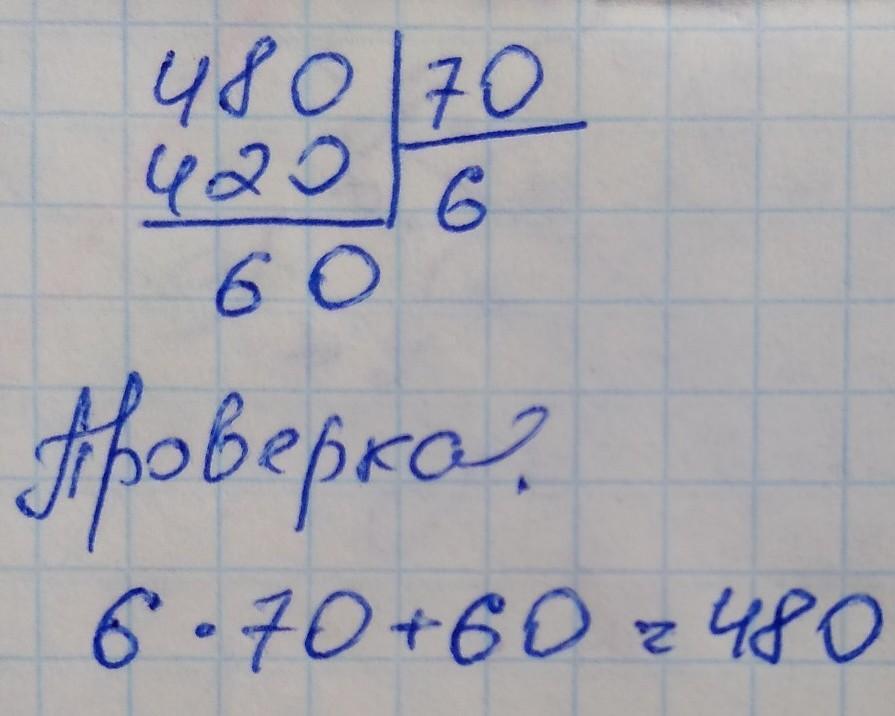 480 70
420 6
60
Проверка.
6 · 70 + 60 = 480